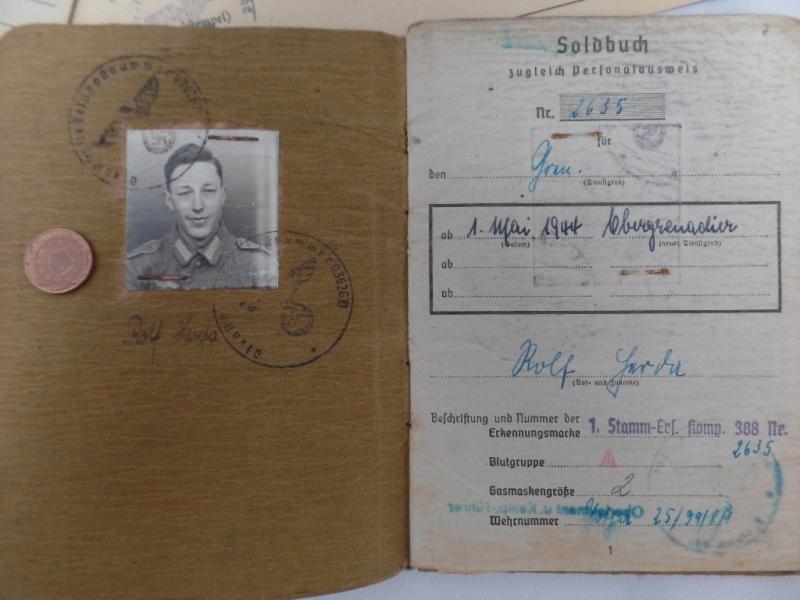 stempel)
Feldpostnummer 03626
nummer 03626D
Rolf Herda
Soldbuch
zugleich Personalausweis
Nr. 2635
für
den Gren.
(Dienstgrad)
ab 1. Mai 1944 Obergrenadier
(Datum) (neuer Dienstgrad)
ab
ab
Rolf Herda
(Vor- und Zuname)
Beschriftung und Nummer der
Erkennungsmarke 1. Stamm-Ers. Komp. 388 Nr.
2635
Blutgruppe A
Gasmaskengröße 2
Oberleutnant u. Komp.-Führer
Wehrnummer 25/99/8/
1